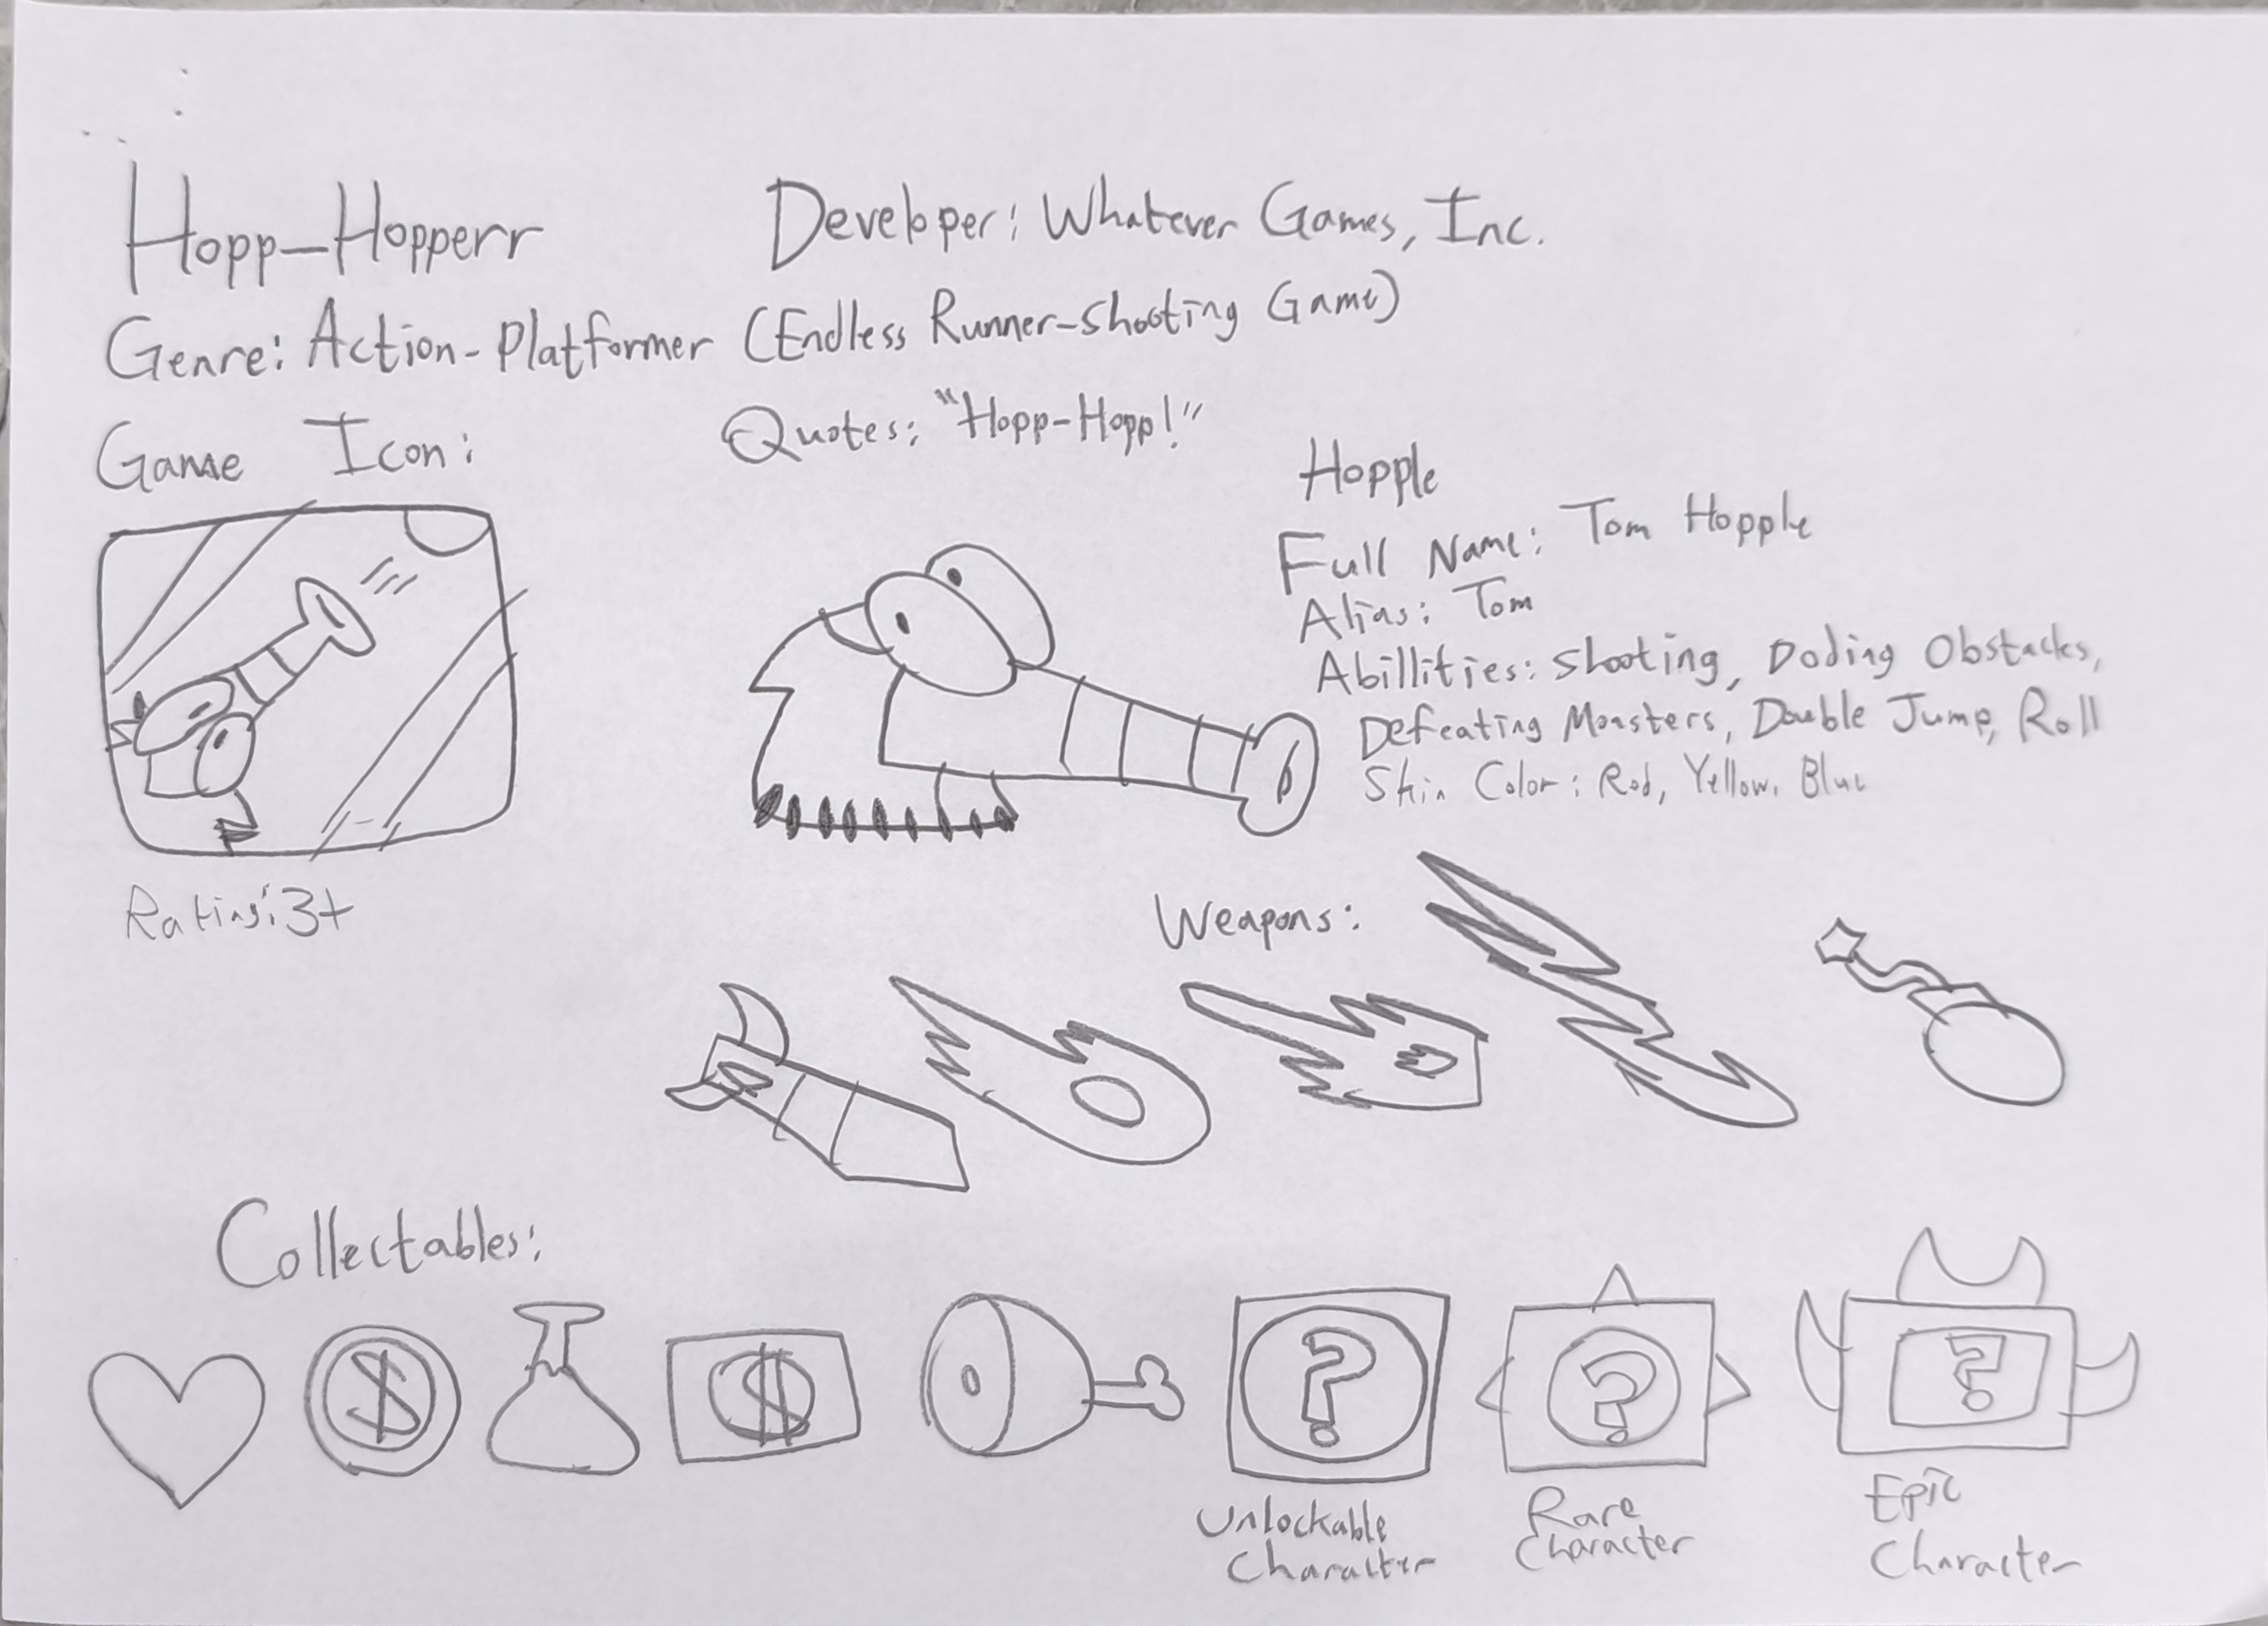 Hopp-Hopperr
Developer: Whatever Games, Inc.
Genre: Action-Platformer (Endless Runner-Shooting Game)
Game Icon:
Quotes: "Hopp-Hopp!"
Hopple
Full Name: Tom Hopple
Alias: Tom
Abillities: Shooting, Doding Obstacles,
Defeating Monsters, Double Jump, Roll
Skin Color: Red, Yellow, Blue
Rating: 3+
Weapons:
Collectables:
$
$
?
?
?
Unlockable
Character
Rare
Character
Epic
Character